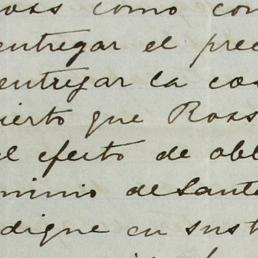 como con
entregar el prec
entregar la cos
ierto que Ross
el efecto de obl
minio de Santo
digne en sust